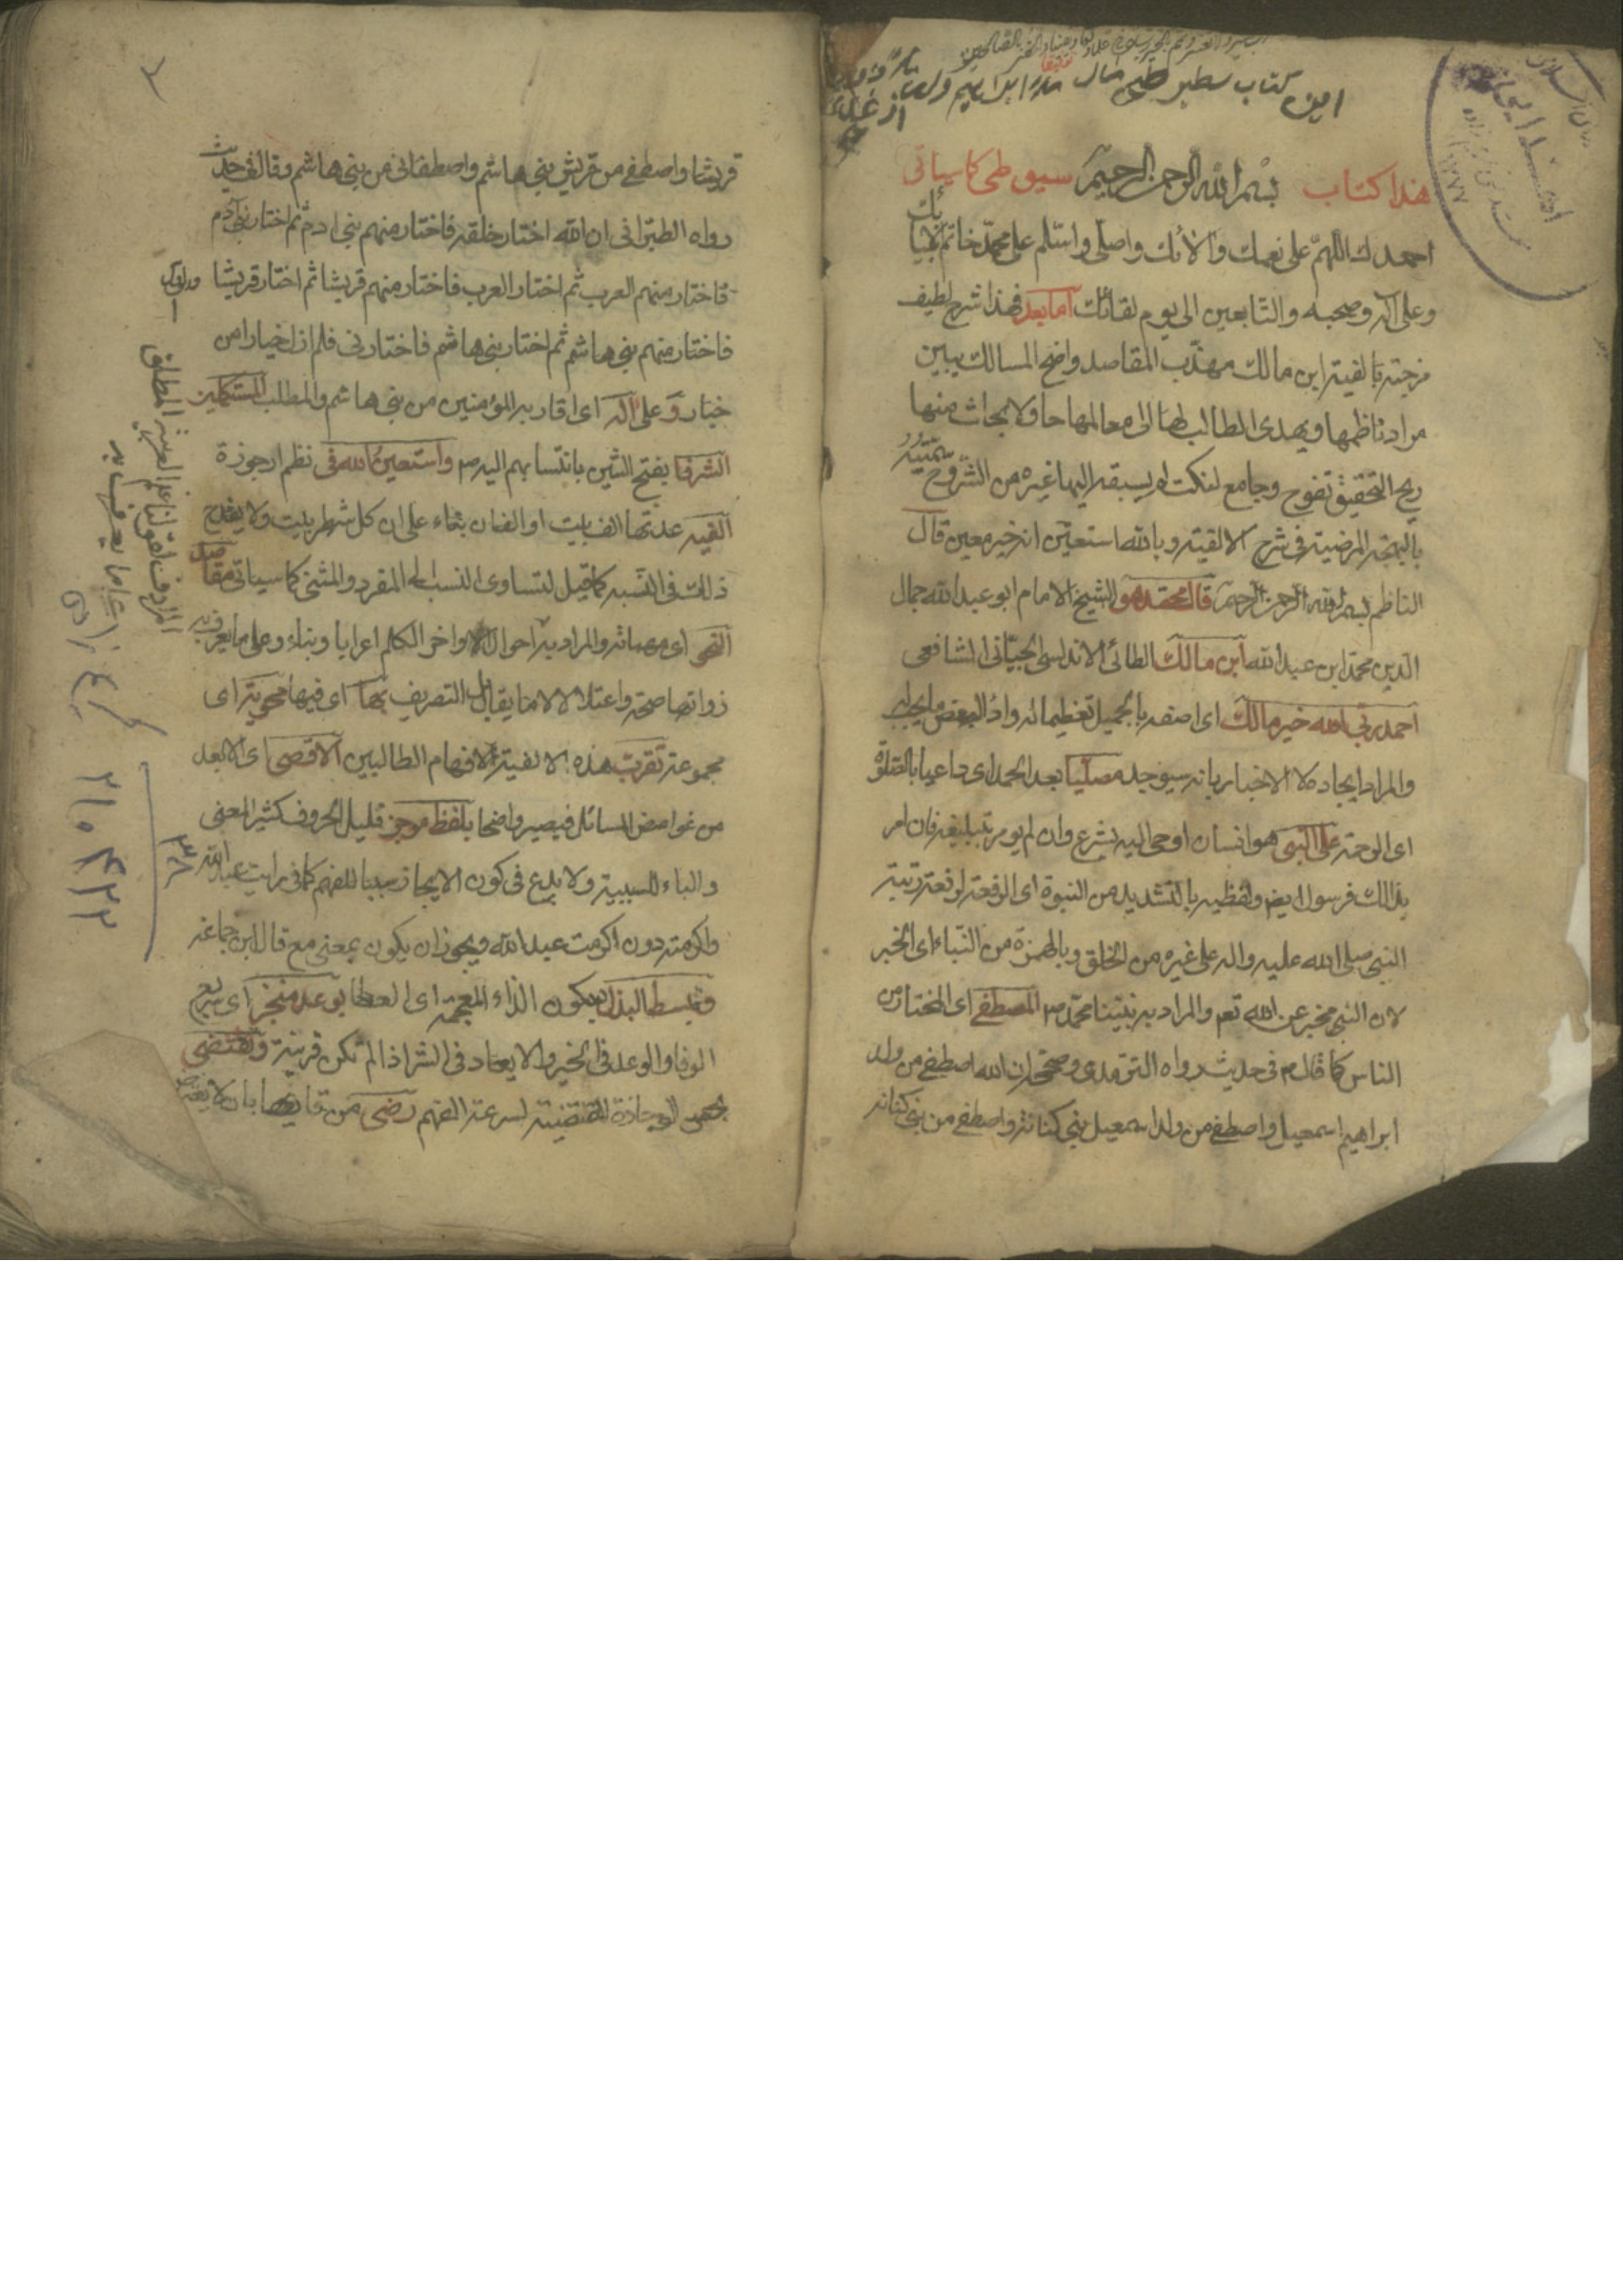 امین کتاب سطیر طی مال ملا ابراهیم ولد
هذا کتاب بسم الله الرحمن الرحیم سیوطی کاسیاتی
احمدك اللهم علی نعمك والائك واصلی واسلم علی محمد خاتم انبیائك
وعلی آله وصحبه والتابعین الی یوم لقائك اما بعد فهذا شرح لطیف
مزجته بالفیة ابن مالك مهذب المقاصد واضح المسالك یبین
مراد ناظمها ویهدی الطالب لها الی معالمها حاو لابحاث منها
ریح التحقیق تفوح وجامع لنکت لم یسبقه الیها غیره من الشروح سمیته
بالبهجة المرضیة فی شرح الالفیة وبالله استعین انه خیر معین قال
الناظم بسم الله الرحمن الرحیم قال محمد هو الشیخ الامام ابو عبدالله جمال
الدین محمد ابن عبدالله ابن مالك الطائی الاندلسی الجیّانی الشافعی
احمد ربی الله خیر مالك ای اصفه بالجمیل تعظیما له واداء لبعض ما یجب له
والمراد ایجاده لا الاخبار بانه سیوجد مصلّیا بعد الحمد ای داعیا بالصلوة
ای الرحمة علی النبی هو انسان اوحی الیه بشرع وان لم یومر بتبلیغه فان امر
بذلك فرسول ایض ولفظه بالتشدید من النبوة ای الرفعة لرفعة رتبة
النبی صلی الله علیه واله علی غیره من الخلق وبالهمزة من النباء ای الخبر
لان النبی مخبر عن الله تعم والمراد به نبینا محمد ص المصطفی ای المختار من
الناس کما قال م فی حدیث رواه الترمدی وصححه ان الله اصطفی من ولد
ابراهیم اسمعیل واصطفی من ولد اسمعیل بنی کنانة واصطفی من بنی کنانه
٢
قریشا واصطفی من قریش بنی هاشم واصطفانی من بنی هاشم وقال فی حدیث
رواه الطبرانی ان الله اختار خلقه فاختار منهم بنی ادم ثم اختار بنی آدم
فاختار منهم العرب ثم اختار العرب فاختار منهم قریشا ثم اختار قریشا
فاختار منهم بنی هاشم ثم اختار بنی هاشم فاختارنی فلم ازل خیارا من
خیار وعلی آله ای اقاربه المؤمنین من بنی هاشم والمطلب المستکملین
الشرفا بفتح الشین بانتسابهم الیه ص واستعین الله فی نظم ارجوزة
الفیه عدتها الف بیت او الفان بناء علی ان کل شطر بیت ولا یقدح
ذلك فی النسبه کما قیل لتساوی النسب الی المفرد والمثنی کما سیاتی مقاصد
النحو ای مهماته والمراد به احوال اواخر الکلم اعرابا وبناء وعلی ما یعرف به
ذواتها صحة واعتلالا لا ما یقابل التصریف بها ای فیها محویة ای
مجموعة تقرب هذه الالفیة لافهام الطالبین الاقصی ای الابعد
من غوامض المسائل فیصیر واضحا بلفظ موجز قلیل الحروف کثیر المعنی
والباء للسببیة ولا بدع فی کون الایجاز سببا للفهم کما فی رایت عبدالله
واکرمته دون اکرمت عبدالله ویجوز ان یکون بمعنی مع قال ابن جماعه
وتبسط البذل بسکون الذاء المعجمة ای العطا بوعد منجز ای سریع
الوفا والوعد فی الخیر والایعاد فی الشر اذا لم تکن قرینة وتقتضی
بحسن الوجازة المقتضیة لسرعة الفهم رضی من قاریها بان لا یعترض
المراد من قولنا علم العربیة المطلق
علی ما یعرف به
٢١٠٤٢٢